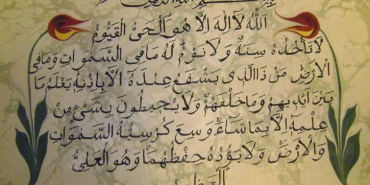 اللّٰهُ لَا اِلٰهَ اِلَّا هُوَ اَلْحَيُّ الْقَيُّومُ
لَا تَأْخُذُهُ سِنَةٌ وَلَا نَوْمٌ لَهُ مَا فِي السَّمٰوَاتِ وَمَا فِي
الْاَرْضِ مَنْ ذَا الَّذِي يَشْفَعُ عِنْدَهُ اِلَّا بِاِذْنِهِ يَعْلَمُ مَا
بَيْنَ اَيْدِيهِمْ وَمَا خَلْفَهُمْ وَلَا يُحِيطُونَ بِشَيْءٍ مِنْ
عِلْمِهِ اِلَّا بِمَا شَاءَ وَسِعَ كُرْسِيُّهُ السَّمٰوَاتِ
وَالْاَرْضَ وَلَا يَؤُدُهُ حِفْظُهُمَا وَهُوَ الْعَلِيُّ
الْعَظِيمُ